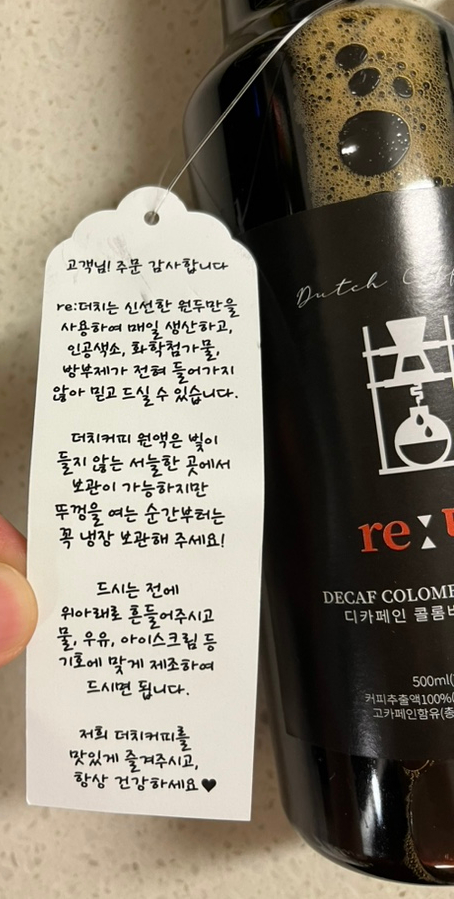 고객님! 주문 감사합니다
re:더치는 신선한 원두만을
사용하여 매일 생산하고,
인공색소, 화학첨가물,
방부제가 전혀 들어가지
않아 믿고 드실 수 있습니다.
더치커피 원액은 빛이
들지 않는 서늘한 곳에서
보관이 가능하지만
뚜껑을 여는 순간부터는
꼭 냉장 보관해 주세요!
드시는 전에
위아래로 흔들어주시고
물, 우유, 아이스크림 등
기호에 맞게 제조하여
드시면 됩니다.
저희 더치커피를
맛있게 즐겨주시고,
항상 건강하세요♥
Dutch
re:
DECAF
디카페인
500ml
커피추출액100%
고카페인함유